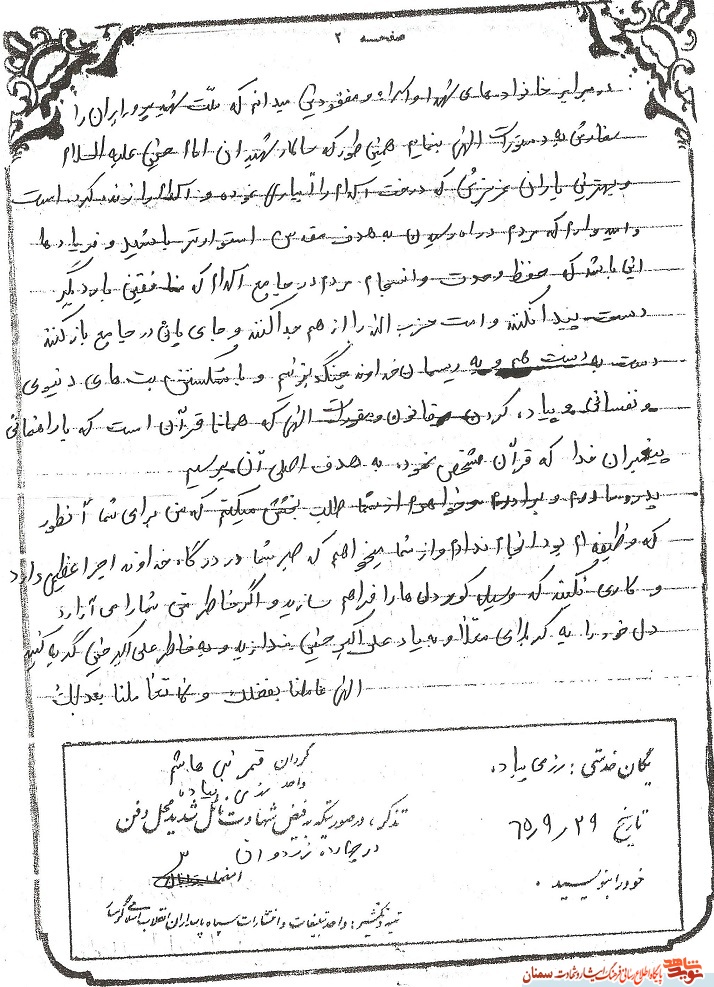 صفحه ۲
در برابر خانواده های شهدا و اسراء و مفقودین میدانم که ملت شهید پرور ایران را
سفارش به دستورات الهی بنمایم همینطور که سالار شهیدان امام حسین علیه السلام
و بهترین یاران عزیزش که درخت اسلام را آبیاری نموده و اسلام را زنده کرده است
و امیدوارم که مردم در راه رسیدن به هدف مقدس استوارتر باشند و فریادها
این باشد که حفظ وحدت و انسجام مردم در جامع اسلام که منافقین بار دیگر
دست پیدا نکنند و امت حزب الله را از هم جدا کنند و جای پائی در جامع باز کنند
دست به دست هم و به ریسمان خداوند چنگ بزنیم و با شکستن بت های دنیوی
و نفسانی و پیاده کردن قانون و مقررات الهی که همانا قرآن است که با راهنمائی
پیغمبران خدا که قرآن مشخص نموده به هدف اصلی آن برسیم
پدر و مادرم و برادرم و خواهرم از شما طلب بخشش میکنم که من برای شما آنطور
که وظیفه ام بود انجام ندادم و از شما میخواهم که صبر شما در درگاه خداوند اجر عظیم دارد
و کاری نکنید که وسیله کور دلها را فراهم سازید و اگر خاطر من شما را می آزارد
دل خود را به کربلای معلا و به یاد علی اکبر حسین بندازید و به خاطر علی اکبر حسین گریه کنید
الهی عاملنا بفضلک و لا تعاملنا بعدلک
یگان خدمتی: رزمی پیاده
گردان قمر بنی هاشم
واحد رزمی پیاده
تاریخ ۲۹ / ۹ / ۶۵
تذکر، در صورتیکه به فیض شهادت نائل شدید محل دفن
خود را بنویسید.
در چهارده
تهیه و تکثیر: واحد تبلیغات و انتشارات سپاه پاسداران انقلاب اسلامی
نوید شاهد
پایگاه اطلاع رسانی فرهنگ ایثار و شهادت سمنان